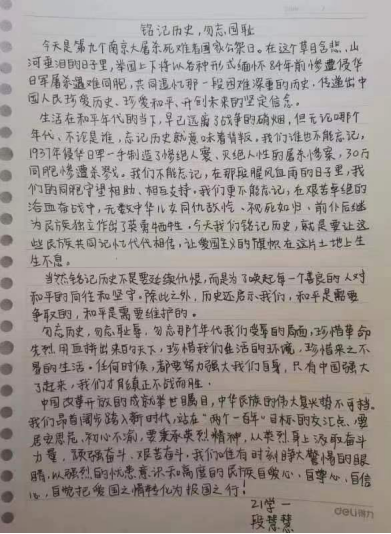 铭记历史,勿忘国耻
今天是第九个南京大屠杀死难者国家公祭日。在这个草目含悲,山
河垂泪的日子里,举国上下将以各种形式缅怀84年前惨遭侵华
日军屠杀遇难同胞,共同追忆那一段困难深重的历史,传递出中
国人民珍爱历史、珍爱和平、开创未来的坚定信念。
生活在和平年代的当下,早已远离了战争的硝烟,但无论哪个
年代,不论是谁,忘记历史就意味着背叛,我们谁也不能忘记,
1937年侵华日军一手制造了惨绝人寰、灭绝人性的屠杀惨案,30万
同胞惨遭杀戮。我们不能忘记,在那段腥风血雨的日子里,我
们的同胞守望相助、相互支持,我们更不能忘记,在艰苦卓绝的
浴血奋战中,无数中华儿女同仇敌忾、视死如归,前仆后继
为民族独立作出了英勇牺牲。今天我们铭记历史,就是要让这
些民族共同记忆代代相传,让爱国主义的旗帜在这片土地上生
生不息。
当然铭记历史不是要延续仇恨,而是为了唤起每一个善良的人对
和平的向往和坚守。除此之外,历史还启示我们,和平是需要
争取的,和平是需要维护的。
勿忘历史,勿忘耻辱,勿忘那个年代我们受辱的局面,珍惜革命
先烈用血拼出来的天下,珍惜我们生活的环境,珍惜来之不
易的生活。任何时候,都要努力强大我们自身,只有中国强大
了起来,我们才能真正不战而胜。
中国改革开放的成就举世瞩目,中华民族的伟大复兴势不可挡。
我们昂首阔步踏入新时代,站在“两个一百年”目标的交汇点,要
居安思危,初心不渝,要秉承英烈精神,从英烈身上汲取奋斗
力量,顽强奋斗、艰苦奋斗,我们唯有时刻睁大警惕的眼
睛,以强烈的忧患意识和高度的民族自爱心,自尊心,自信
心,自觉把爱国之情转化为报国之行!
21学一
段慧慧
deli得力